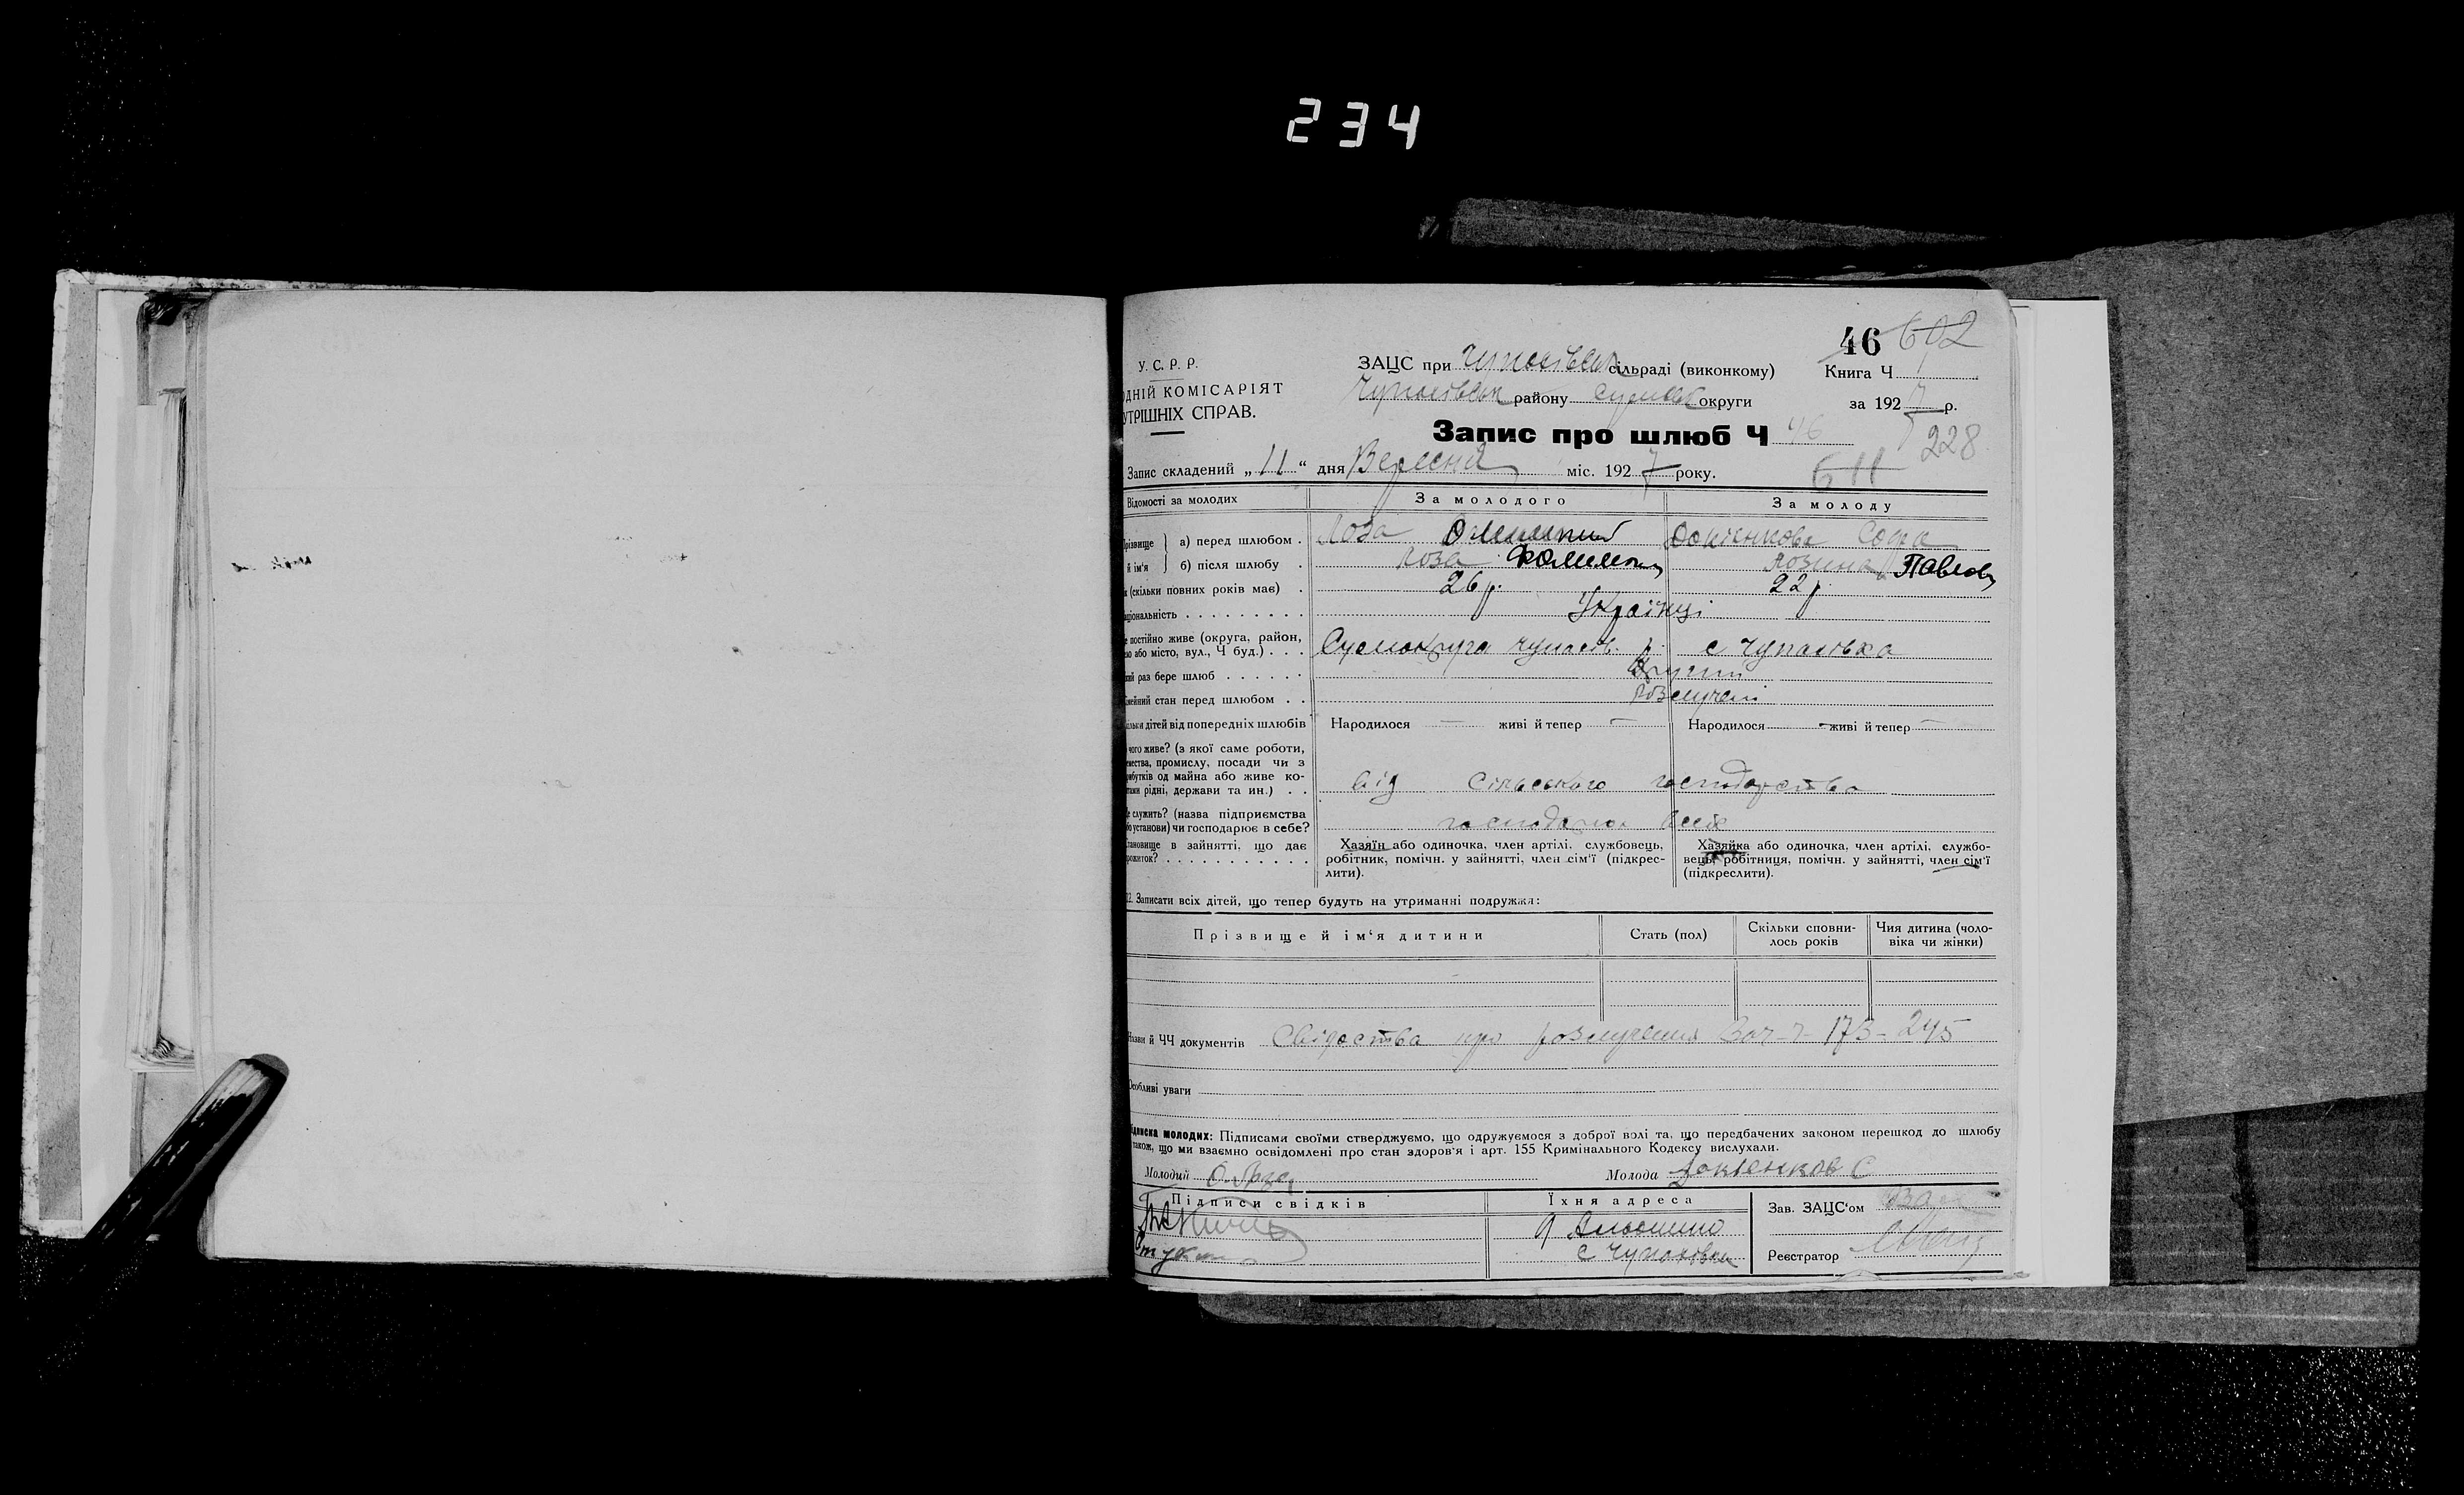 234
46 602
У. С. Р. Р.
ЗАЦС при Чупахівськ сільраді (виконкому)
Книга Ч
ОДНІЙ КОМІСАРІЯТ
Чупахівськ району Сумськ округи
за 1927 р.
УТРІШНІХ СПРАВ.
Запис про шлюб Ч 46
228
Запис складений „11“ дня Вересня міс. 1927 року.
611
Відомості за молодих За молодого За молоду
різвище а) перед шлюбом . Лоза Софія
й ім'я б) після шлюбу . Лоза Лозина Павлов
(скільки повних років має) . 26 р. 22 р
аціональність . . . . . . . . . Українці
е постійно живе (округа, район,
або місто, вул., Ч буд.) . . . Сумокруга Чупахів. р. с Чупахівка
раз бере шлюб . . . . . . Другий
мейний стан перед шлюбом . . Розлучені
ільки дітей від попередніх шлюбів Народилося — живі й тепер — Народилося — живі й тепер —
чого живе? (з якої саме роботи,
промислу, посади чи з
од майна або живе ко-
рідні, держави та ин.) . .
від сільського господарства
е служить? (назва підприємства
установи) чи господарює в себе?
тановище в зайнятті, що дає
прожиток? . . . . . . . . . . .
Хазяїн або одиночка, член артілі, службовець,
робітник, помічн. у зайнятті, член сім'ї (підкрес-
лити).
Хазяйка або одиночка, член артілі, службо-
вець, робітниця, помічн. у зайнятті, член сім'ї
(підкреслити).
22. Записати всіх дітей, що тепер будуть на утриманні подружжя:
Прізвище й ім'я дитини Стать (пол) Скільки сповни-
лось років Чия дитина (чоло-
віка чи жінки)
Назви й ЧЧ документів Свідоства про розлучення 173 - 245
Особливі уваги
ідписка молодих: Підписами своїми стверджуємо, що одружуємося з доброї волі та, що передбачених законом перешкод до шлюбу
також, що ми взаємно освідомлені про стан здоров'я і арт. 155 Кримінального Кодексу вислухали.
Молодий О. Лоза Молода С
Підписи свідків Їхня адреса Зав. ЗАЦС'ом
с Чупахівка Реєстратор